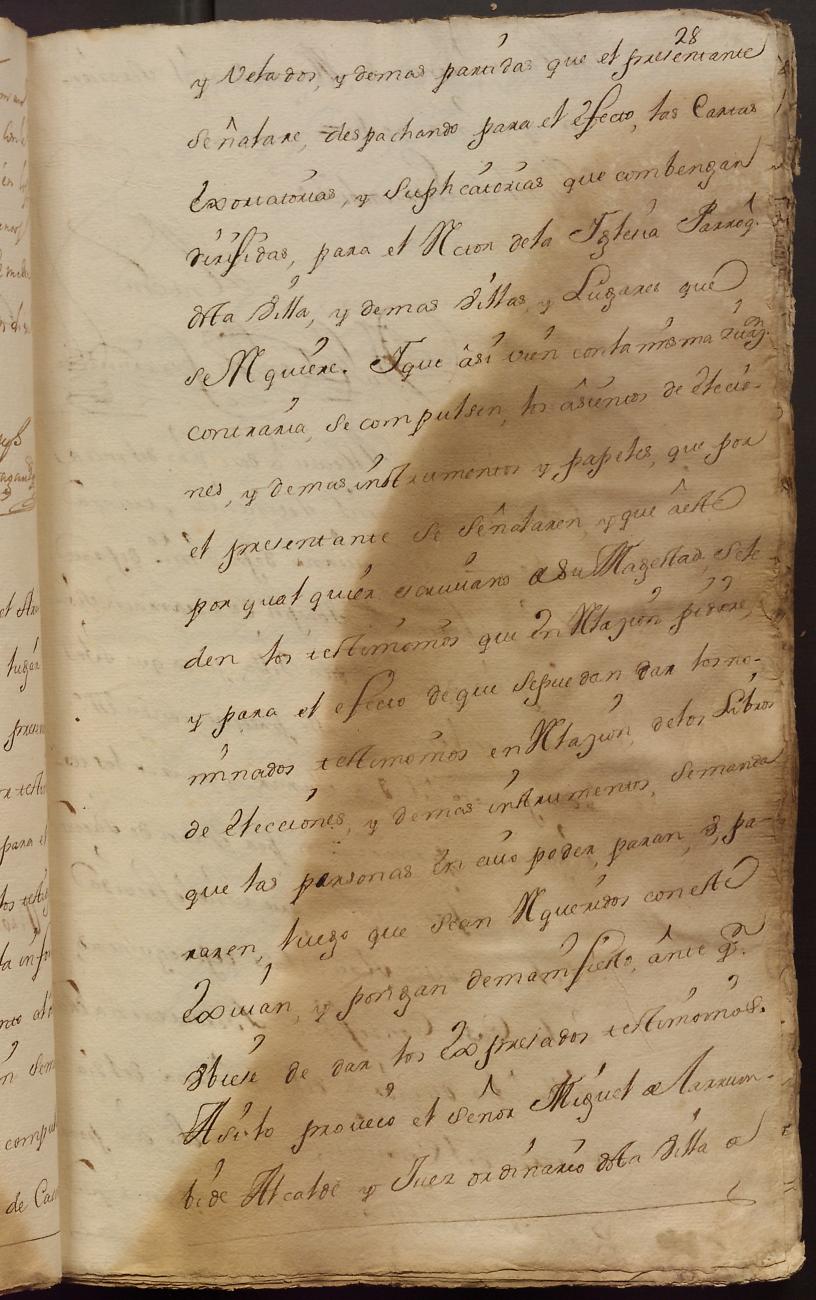 28
y Velados, y demas partidas que el presentante
señalare, despachando para el efecto, las Cartas
Exortatorias, y Suplicatorias que combengan
dirijidas, para el Rctor dela Iglesia Parroq.
dsta Villa, y demas Villas, y Lugares que
se Rquiere. Y que âsi vien con la misma
contraria, se compulsen, los âsientos de Eleccio-
nes, y demas instrumentos y papeles, que por
el presentante se señalaren, y que âeste
por qualquier escriuano de Su Magestad, se le
den los testimonios que en Rlazion pidiere,
y para el efecto de que sepuedan dar los no-
minados testimonios en Rlazion, delos Libros
de Elecciones, y demas instrumentos, se manda
que las personas En cuio poder, paran, ô, pa-
raren, luego que sean Rqueridos con este
Exivan, y pongan de manifiesto, ânte q.
Vbiese de dar, los Expresados testimonios.
Asi lo proueio el Señor Miguel de Larrum-
bide Alcalde y Juez ordinario dsta Villa de